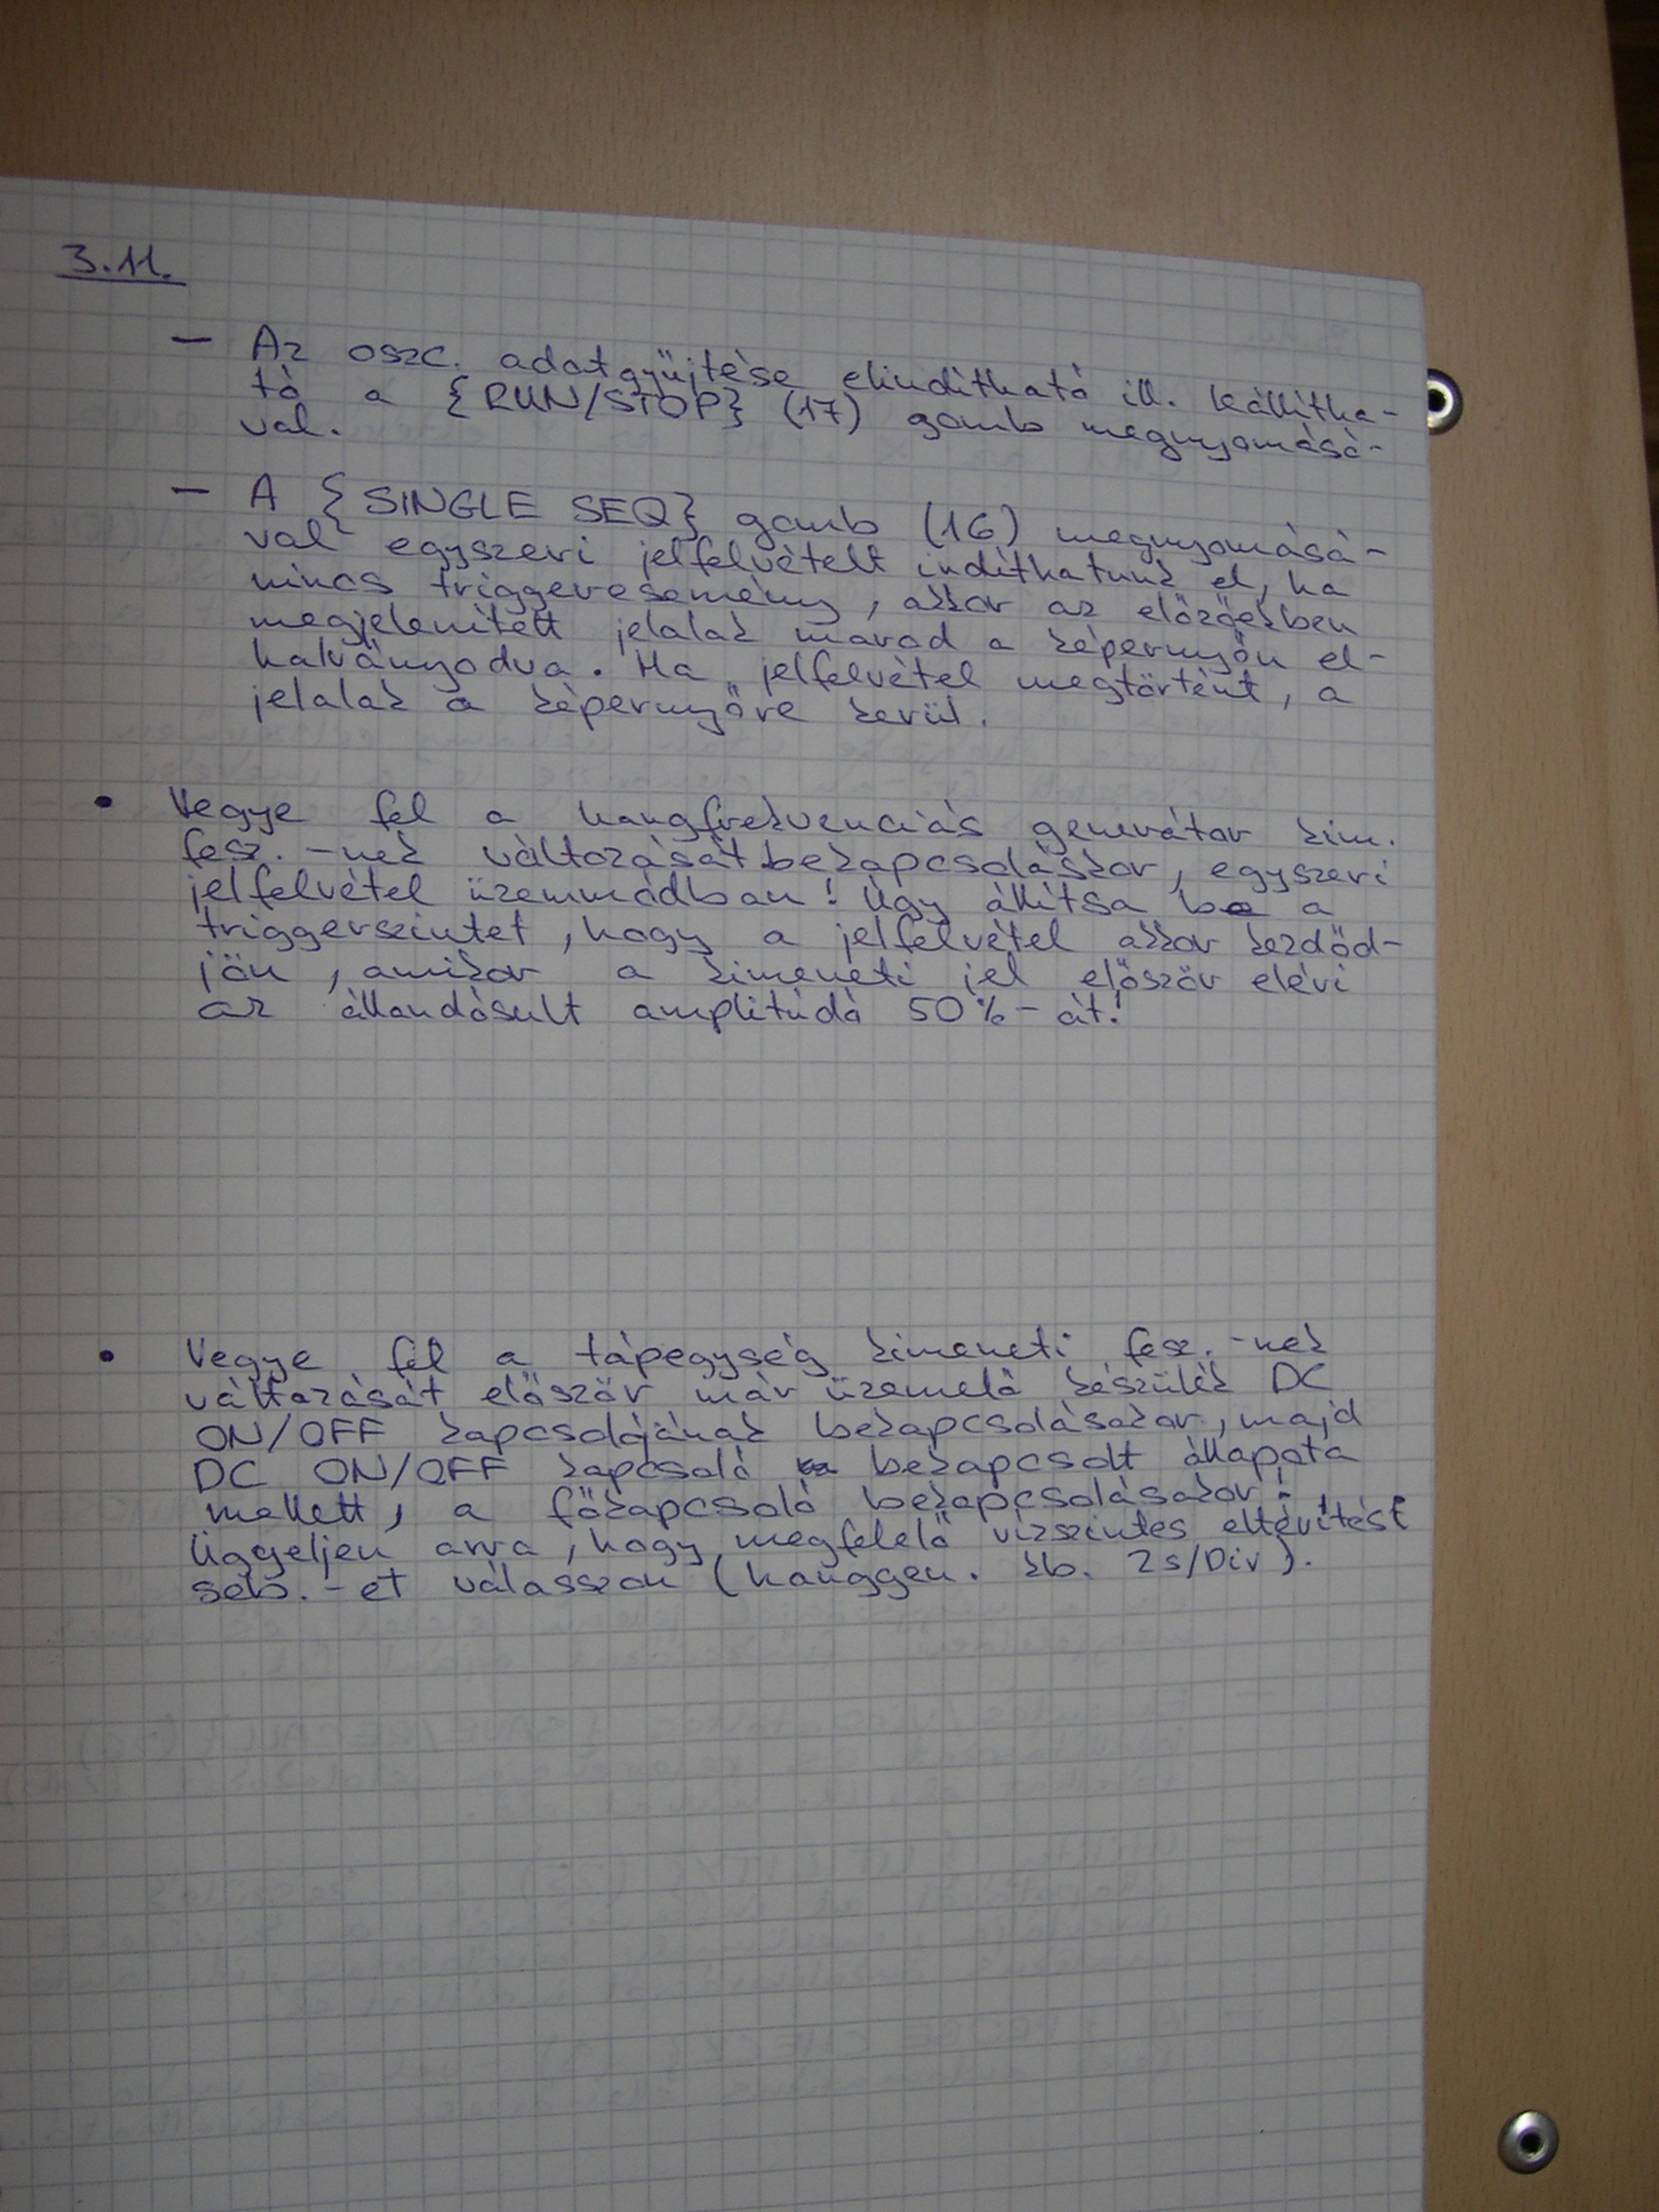 3.11.
– Az oszc. adatgyűjtése elindítható ill. leállítha-
tó a {RUN/STOP} (17) gomb megnyomásá-
val.
– A {SINGLE SEQ} gomb (16) megnyomásá-
val egyszeri jelfelvételt indíthatunk el, ha
nincs triggeresemény, akkor az előzőekben
megjelenített jelalak marad a képernyőn el-
halványodva. Ha jelfelvétel megtörtént, a
jelalak a képernyőre kerül.
• Vegye fel a hangfrekvenciás generátor kim.
fesz.-nek változását bekapcsoláskor, egyszeri
jelfelvétel üzemmódban! Úgy állítsa be a
triggerszintet, hogy a jelfelvétel akkor kezdőd-
jön, amikor a kimeneti jel először eléri
az állandósult amplitúdó 50%-át!
• Vegye fel a tápegység kimeneti fesz.-nek
változását először már üzemelő készülék DC
ON/OFF kapcsolójának bekapcsolásakor, majd
DC ON/OFF kapcsoló bekapcsolt állapota
mellett, a főkapcsoló bekapcsolásakor!
Ügyeljen arra, hogy megfelelő vízszintes eltérítési
seb.-et válasszon (hanggen. kb. 2s/Div).